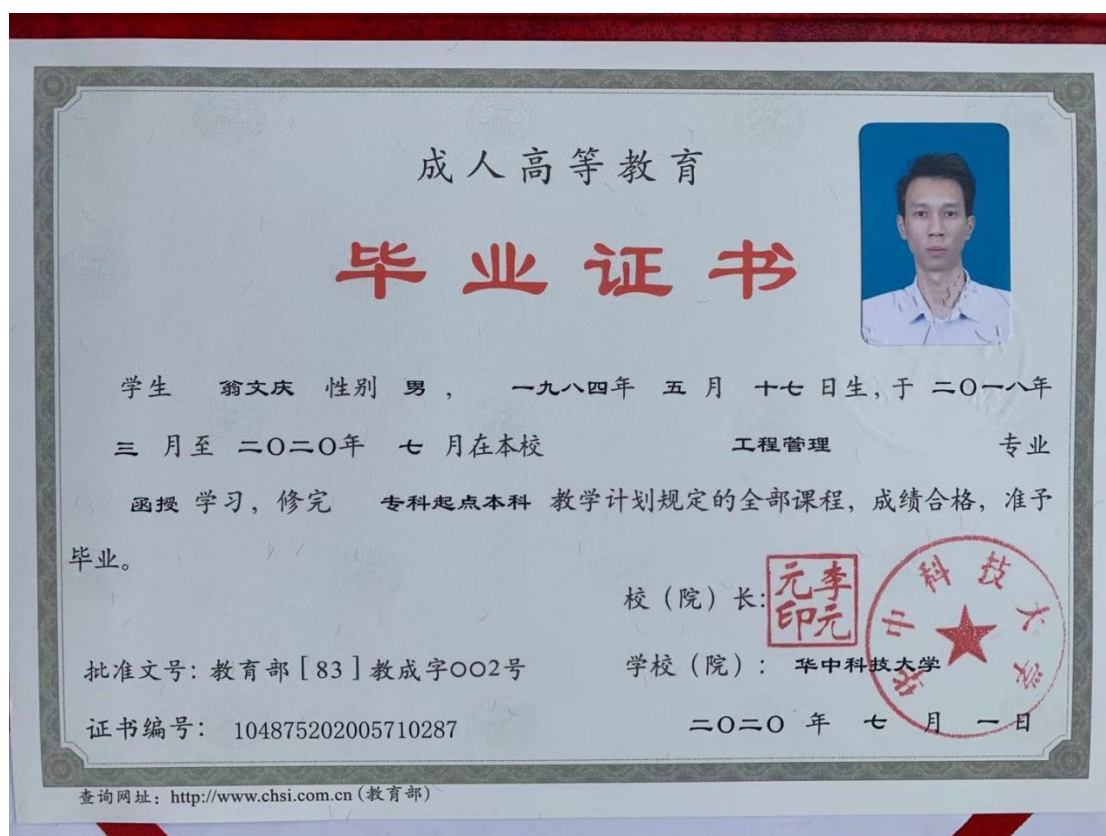 成人高等教育
毕业证书
学生 翁文庆 性别 男 , 一九八四年 五 月 十七 日生,于 二〇一八年
三 月至 二〇二〇年 七 月在本校 工程管理 专业
函授 学习, 修完 专科起点本科 教学计划规定的全部课程, 成绩合格, 准予
毕业。
校(院)长: 李元元印
批准文号: 教育部[83]教成字002号
学校(院): 华中科技大学
华中科技大学
证书编号: 104875202005710287
二〇二〇 年 七 月 一 日
查询网址: http://www.chsi.com.cn (教育部)